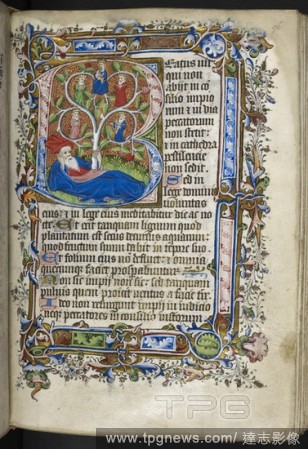 Beatus uir
qui non
abijt in co
silio impio
& in uia
peccatorum
non stetit:
& in cathedra
pestilencie
non sedit.
Sed in
lege domini
uoluntas
eius: & in lege eius meditabitur die ac no
cte. Et erit tanquam lignum quod
plantatum est secus decursus aquarum:
quod fructum suum dabit in tempore suo.
Et folium eius non defluet: & omnia
quecumque faciet prosperabuntur.
Non sic impij non sic: sed tanquam
puluis quem proicit uentus a facie terre.
Ideo non resurgunt impij in iudicio
neque peccatores in consilio iustorum
TPG
www.tpgnews.com/ 達志影像